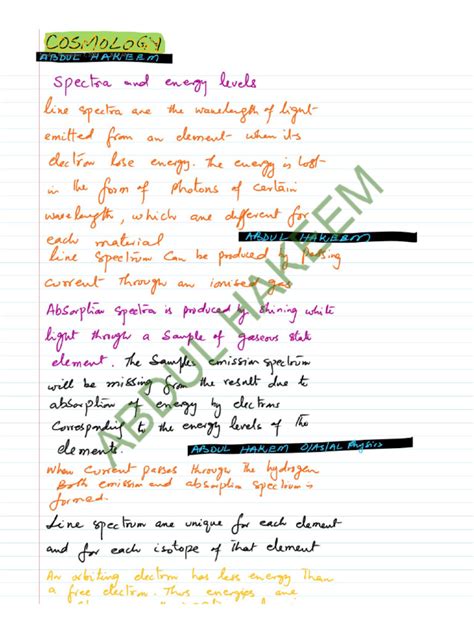 COSMOLOGY
ABDUL HAKEEM
Spectra and energy levels
Line spectra are the wavelength of light
emitted from an element when its
electron lose energy. The energy is lost
in the form of photons of certain
wavelength, which are different for
each material
ABDUL HAKEEM
Line spectrum can be produced by passing
current through an ionised gas
Absorption spectra is produced by shining white
light through a sample of gaseous state
element. The samples emission spectrum
will be missing from the result due to
absorption of energy by electrons
corresponding to the energy levels of the
elements.
ABDUL HAKEEM O/AS/AL Physics
When current passes through the hydrogen
Both emission and absorption spectrum is
formed.
Line spectrum are unique for each element
and for each isotope of that element
An orbiting electron has less energy than
a free electron. Thus energies are
ABDUL HAKEEM